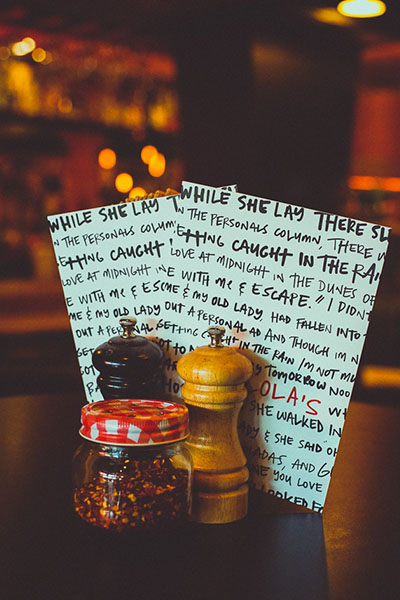 WHILE SHE LAY
N THE PERSONALS COLUMN
ETTING CAUGHT
LOVE AT MIDNIGHT IN
E WITH ME & ESC
ME & MY OLD LADY
OUT A PERSONAL
GETTING
WHILE SHE LAY THERE SL
IN THE PERSONALS COLUMN, THERE W
ETTING CAUGHT IN THE RAI
LOVE AT MIDNIGHT IN THE DUNES OF
NE WITH ME & ESCAPE." I DIDN'T
ME & MY OLD LADY, HAD FALLEN INTO
OUT A PERSONAL AD AND THOUGH IM N
IN THE RAIN / I'M NOT MU
BY TOMORROW NOO
OLA'S
SHE WALKED IN
ADY & SHE SAID "OH
ADAS, AND G
E YOU LOVE
LOOKED F